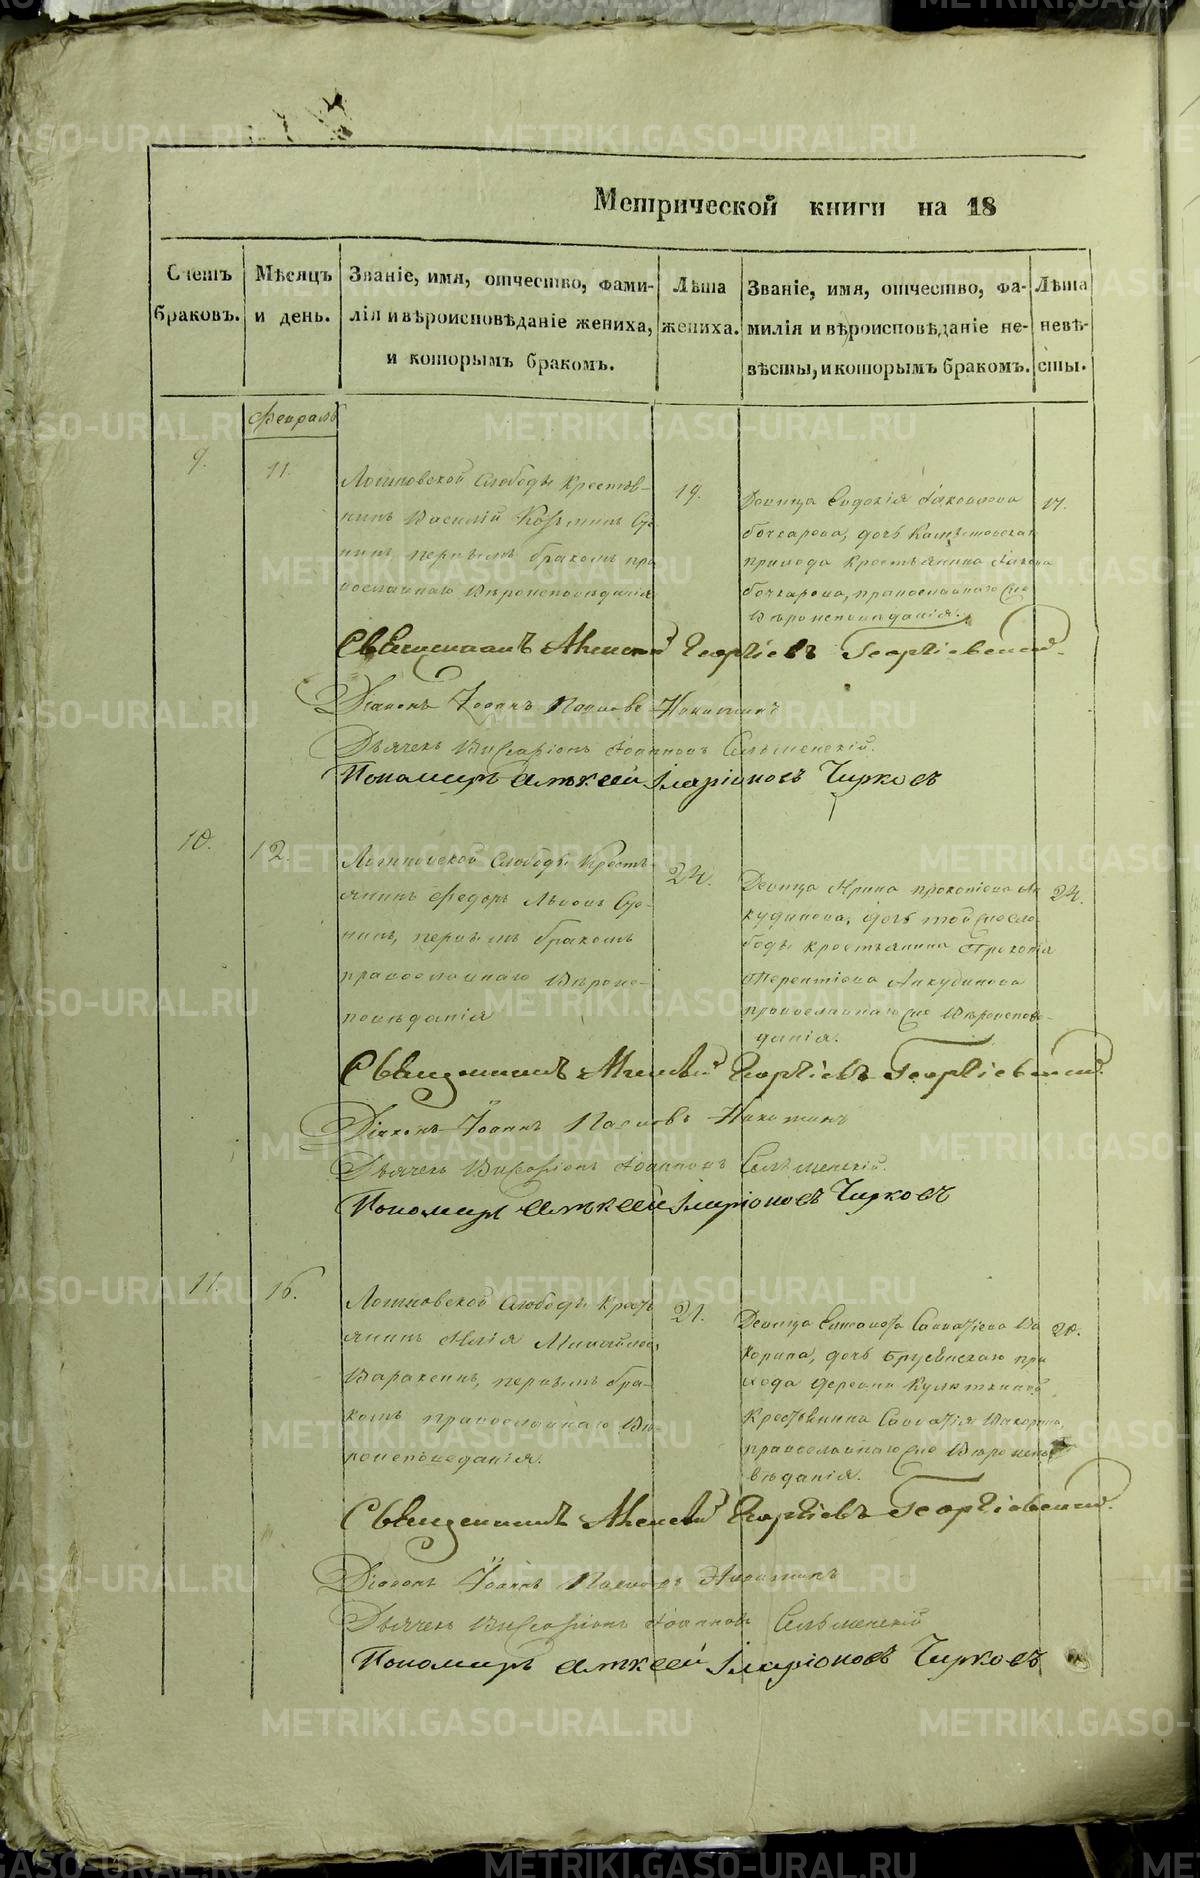 Метрической книги на 18
Счетъ браковъ.
Мѣсяцъ и день.
Званіе, имя, отчество, фами-
лія и вѣроисповѣданіе жениха,
и которымъ бракомъ.
Лѣта
жениха.
Званіе, имя, отчество, фа-
милія и вѣроисповѣданіе не-
вѣсты, и которымъ бракомъ.
Лѣта
невѣ-
сты.
Февраль
9.
11.
Логиновской Слободы Крестья-
нинъ Василій Козьминъ
нинъ, первымъ бракомъ пра
вославнаго Вѣроисповѣданія
19.
Девица Евдокія Іаковлева
Бочкарова, дочь
прихода Крестьянина Іакова
Бочкарова, православнаго же
Вѣроисповѣданія.
17.
Свѧщенникъ Алексѣй Георгіевъ Георгіевскій.
Діаконъ Іоаннъ Павловъ Никитинъ
Дьячекъ Виссаріонъ Іоанновъ Сельменскій.
Пономарь Алѣксѣй Іларіоновъ Чирковъ
10.
12.
Логиновской Слободы Кресть-
янинъ Федоръ Львовъ Су-
нинъ, первымъ бракомъ
православнаго Вѣроис-
повѣданія
24.
Девица Ирина Прокопіева Ан
кудинова, дочь той же сло-
боды крестьянина Прокопія
Терентіева Анкудинова
православнаго же Вѣроиспов-
данія.
24.
Свѧщенникъ Алексѣй Георгіевъ Георгіевскій.
Діаконъ Іоаннъ Павловъ Никитинъ
Дьячекъ Виссаріонъ Іоанновъ Сельменскій.
Пономарь Алѣксѣй Іларіоновъ Чирковъ
11.
16.
Логиновской Слободы Кресть
янинъ Илія Михайловъ
Вараксинъ, первымъ бра-
комъ православнаго Вѣ
роисповеданія.
21.
Девица Елисавета Савватіева Ва
корина, дочь Брусянскаго при
хода деревни
Крестьянина Савватія Вакорина,
православнаго же Вѣроиспо
вѣданія.
20.
Свѧщенникъ Алексѣй Георгіевъ Георгіевскій.
Діаконъ Іоаннъ Павловъ Никитинъ
Дьячекъ Виссаріонъ Іоанновъ Сельменскій
Пономарь Алѣксѣй Іларіоновъ Чирковъ
METRIKI.GASO-URAL.RU